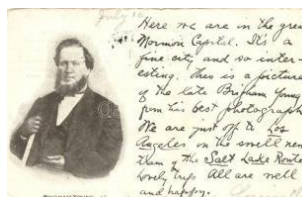 July
Here we are in the great
Mormon Capitol. It's a
fine city and so inter-
esting. This is a picture
of the late Brigham Young
from his best photograph
We are just off to Los
Angeles on the swell new
train of the Salt Lake Route
Lovely trip. All are well
and happy.